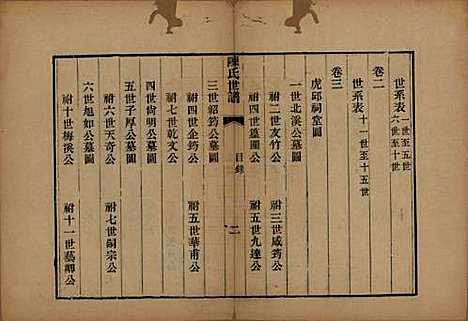 世系表 一世至五世 六世至十世
卷二
世系表 十一世至十五世
卷三
虎邱祠堂圖
一世北溪公墓圖
祔二世友竹公 祔三世咸筠公
祔四世篁圃公 祔五世九達公
陳氏世譜 目錄 二
三世紹筠公墓圖
祔四世企筠公 祔五世華甫公
祔七世乾文公
四世尙明公墓圖
五世子厚公墓圖
祔六世天奇公 祔七世嗣宗公
六世旭如公墓圖
祔十世梅溪公 祔十一世藝卿公